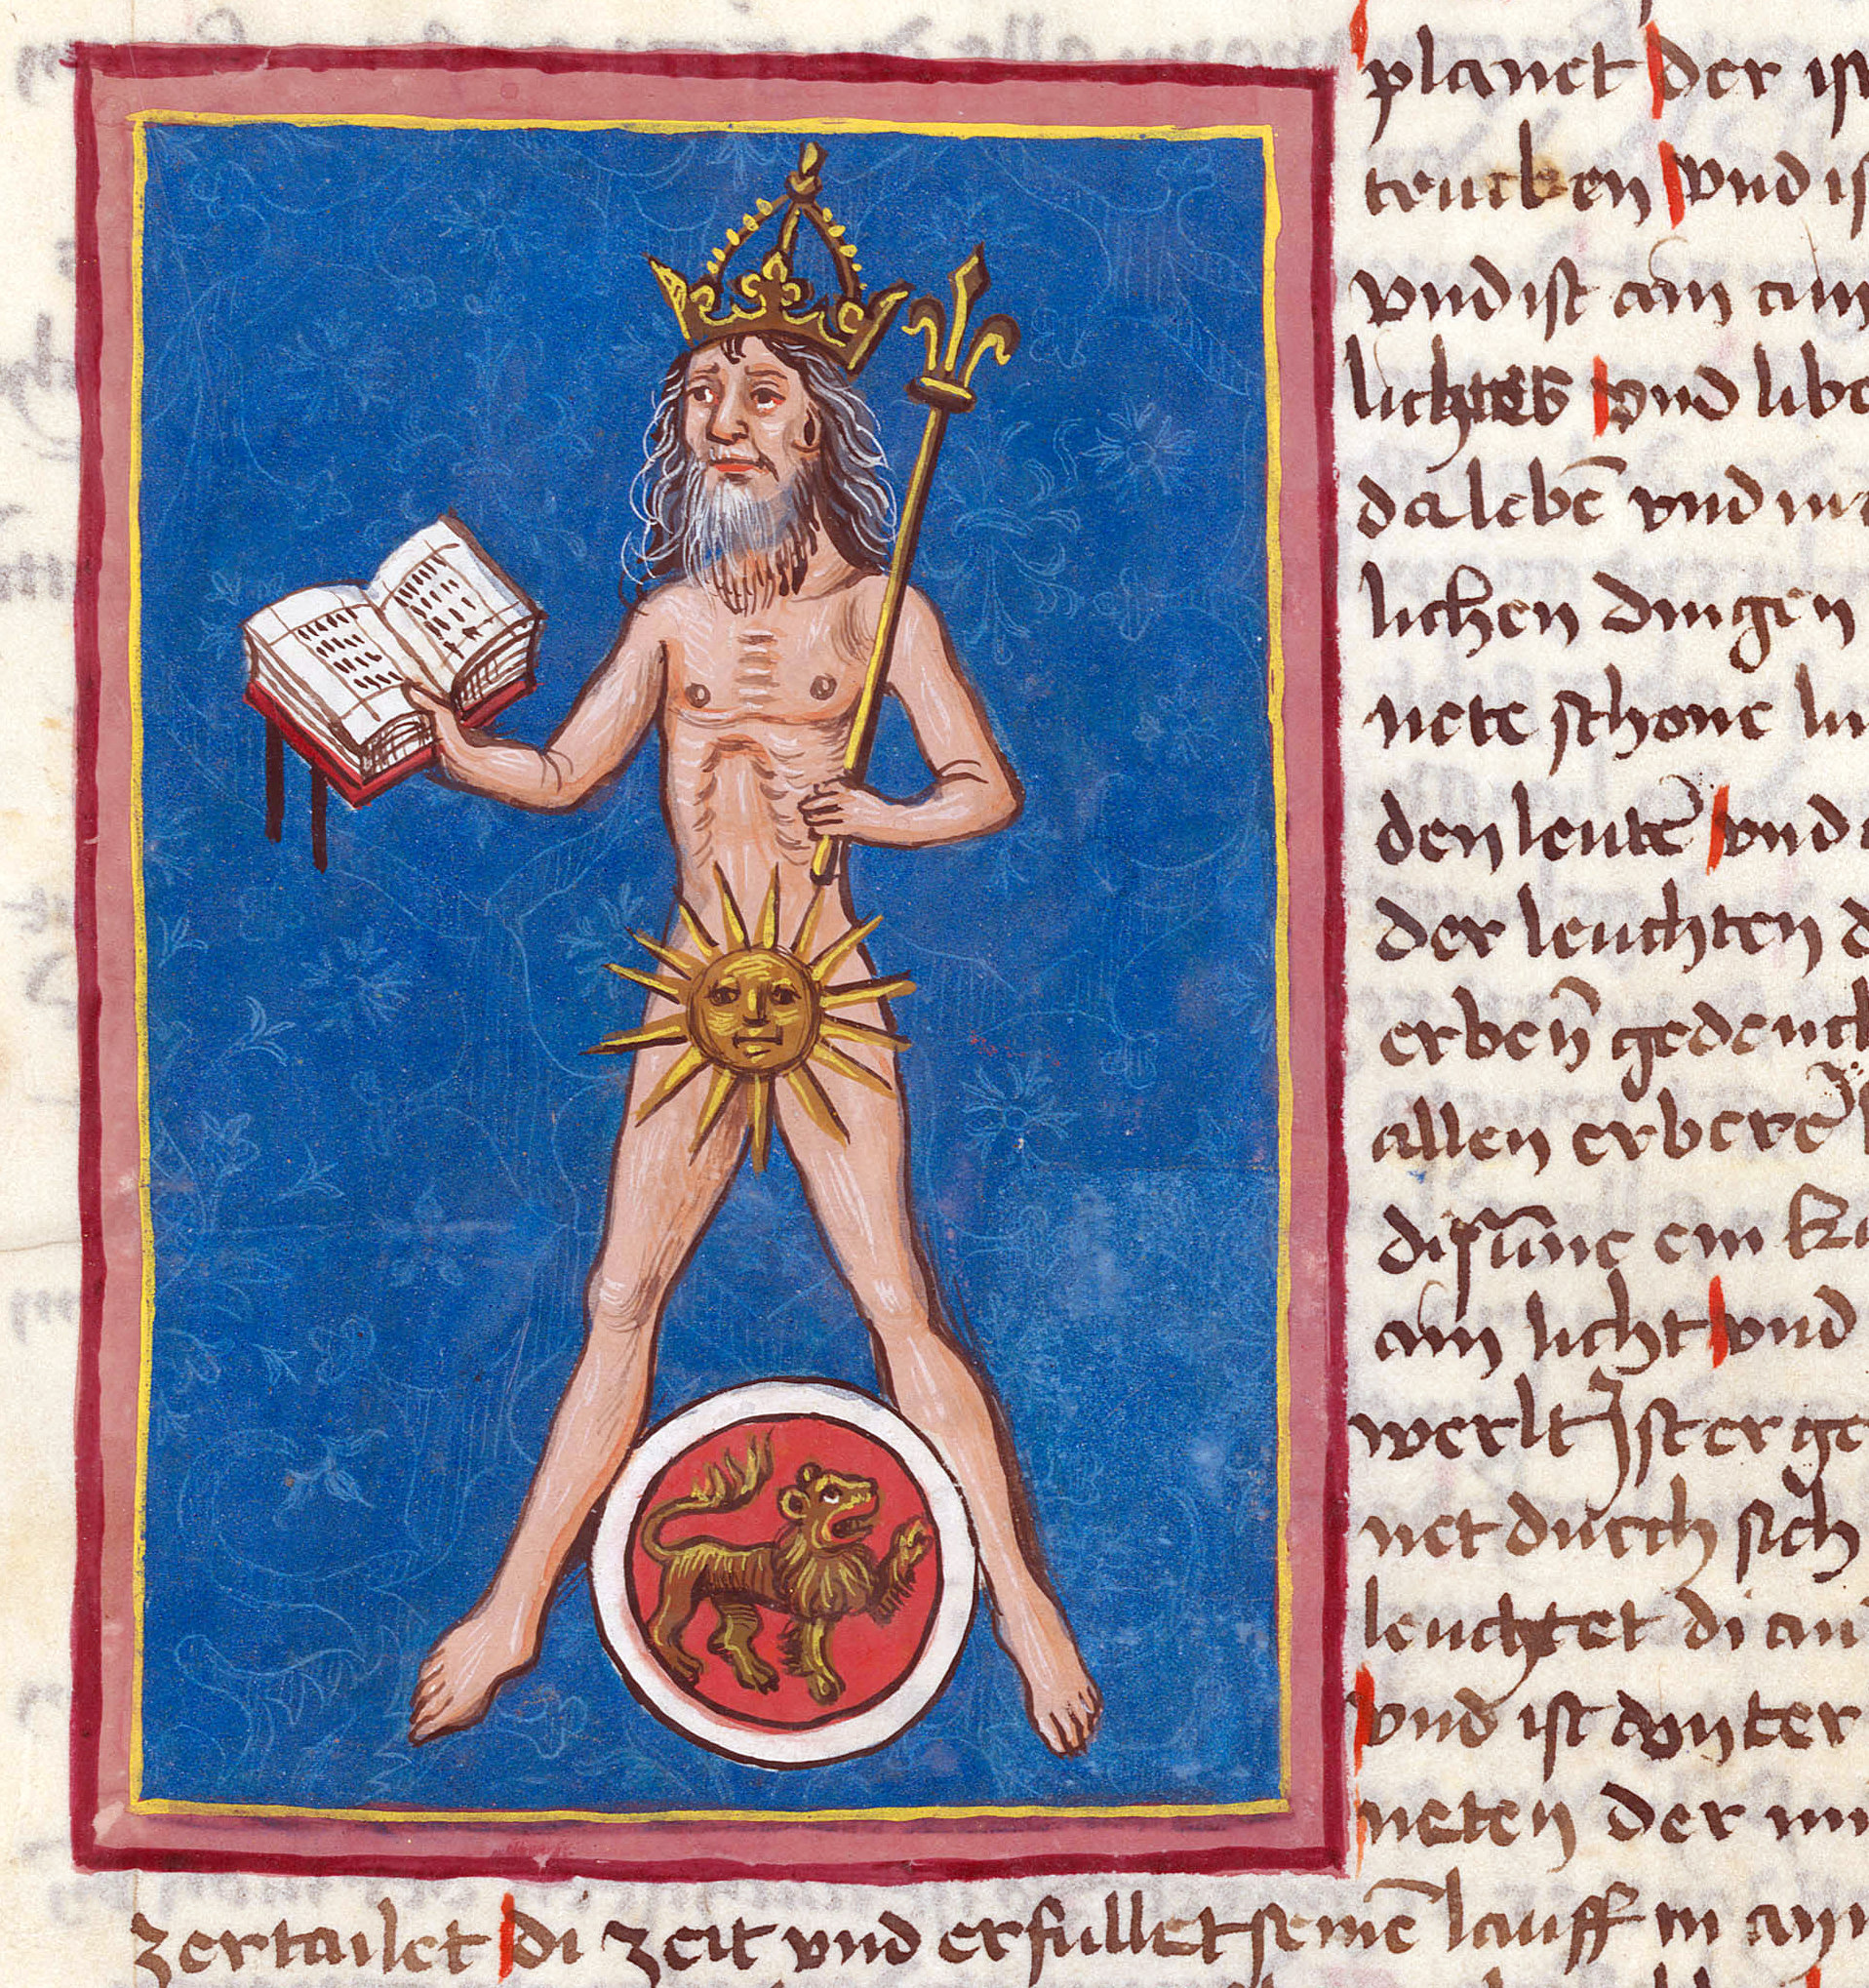 planet der ist
trucken vnd is
vnd ist ain
lichtes vnd libe
da lebē vnd
lichen dingen
nete schone
den leutē vnd
der leuchten d
erbeñ gedenck
allen erberē
di suñe ein
ain licht vnd
werlt Ist er ge
net durch sich
leuchtet di
vnd ist vnter
neten der
zertailet di zeit vnd erfullet seinē lauff in